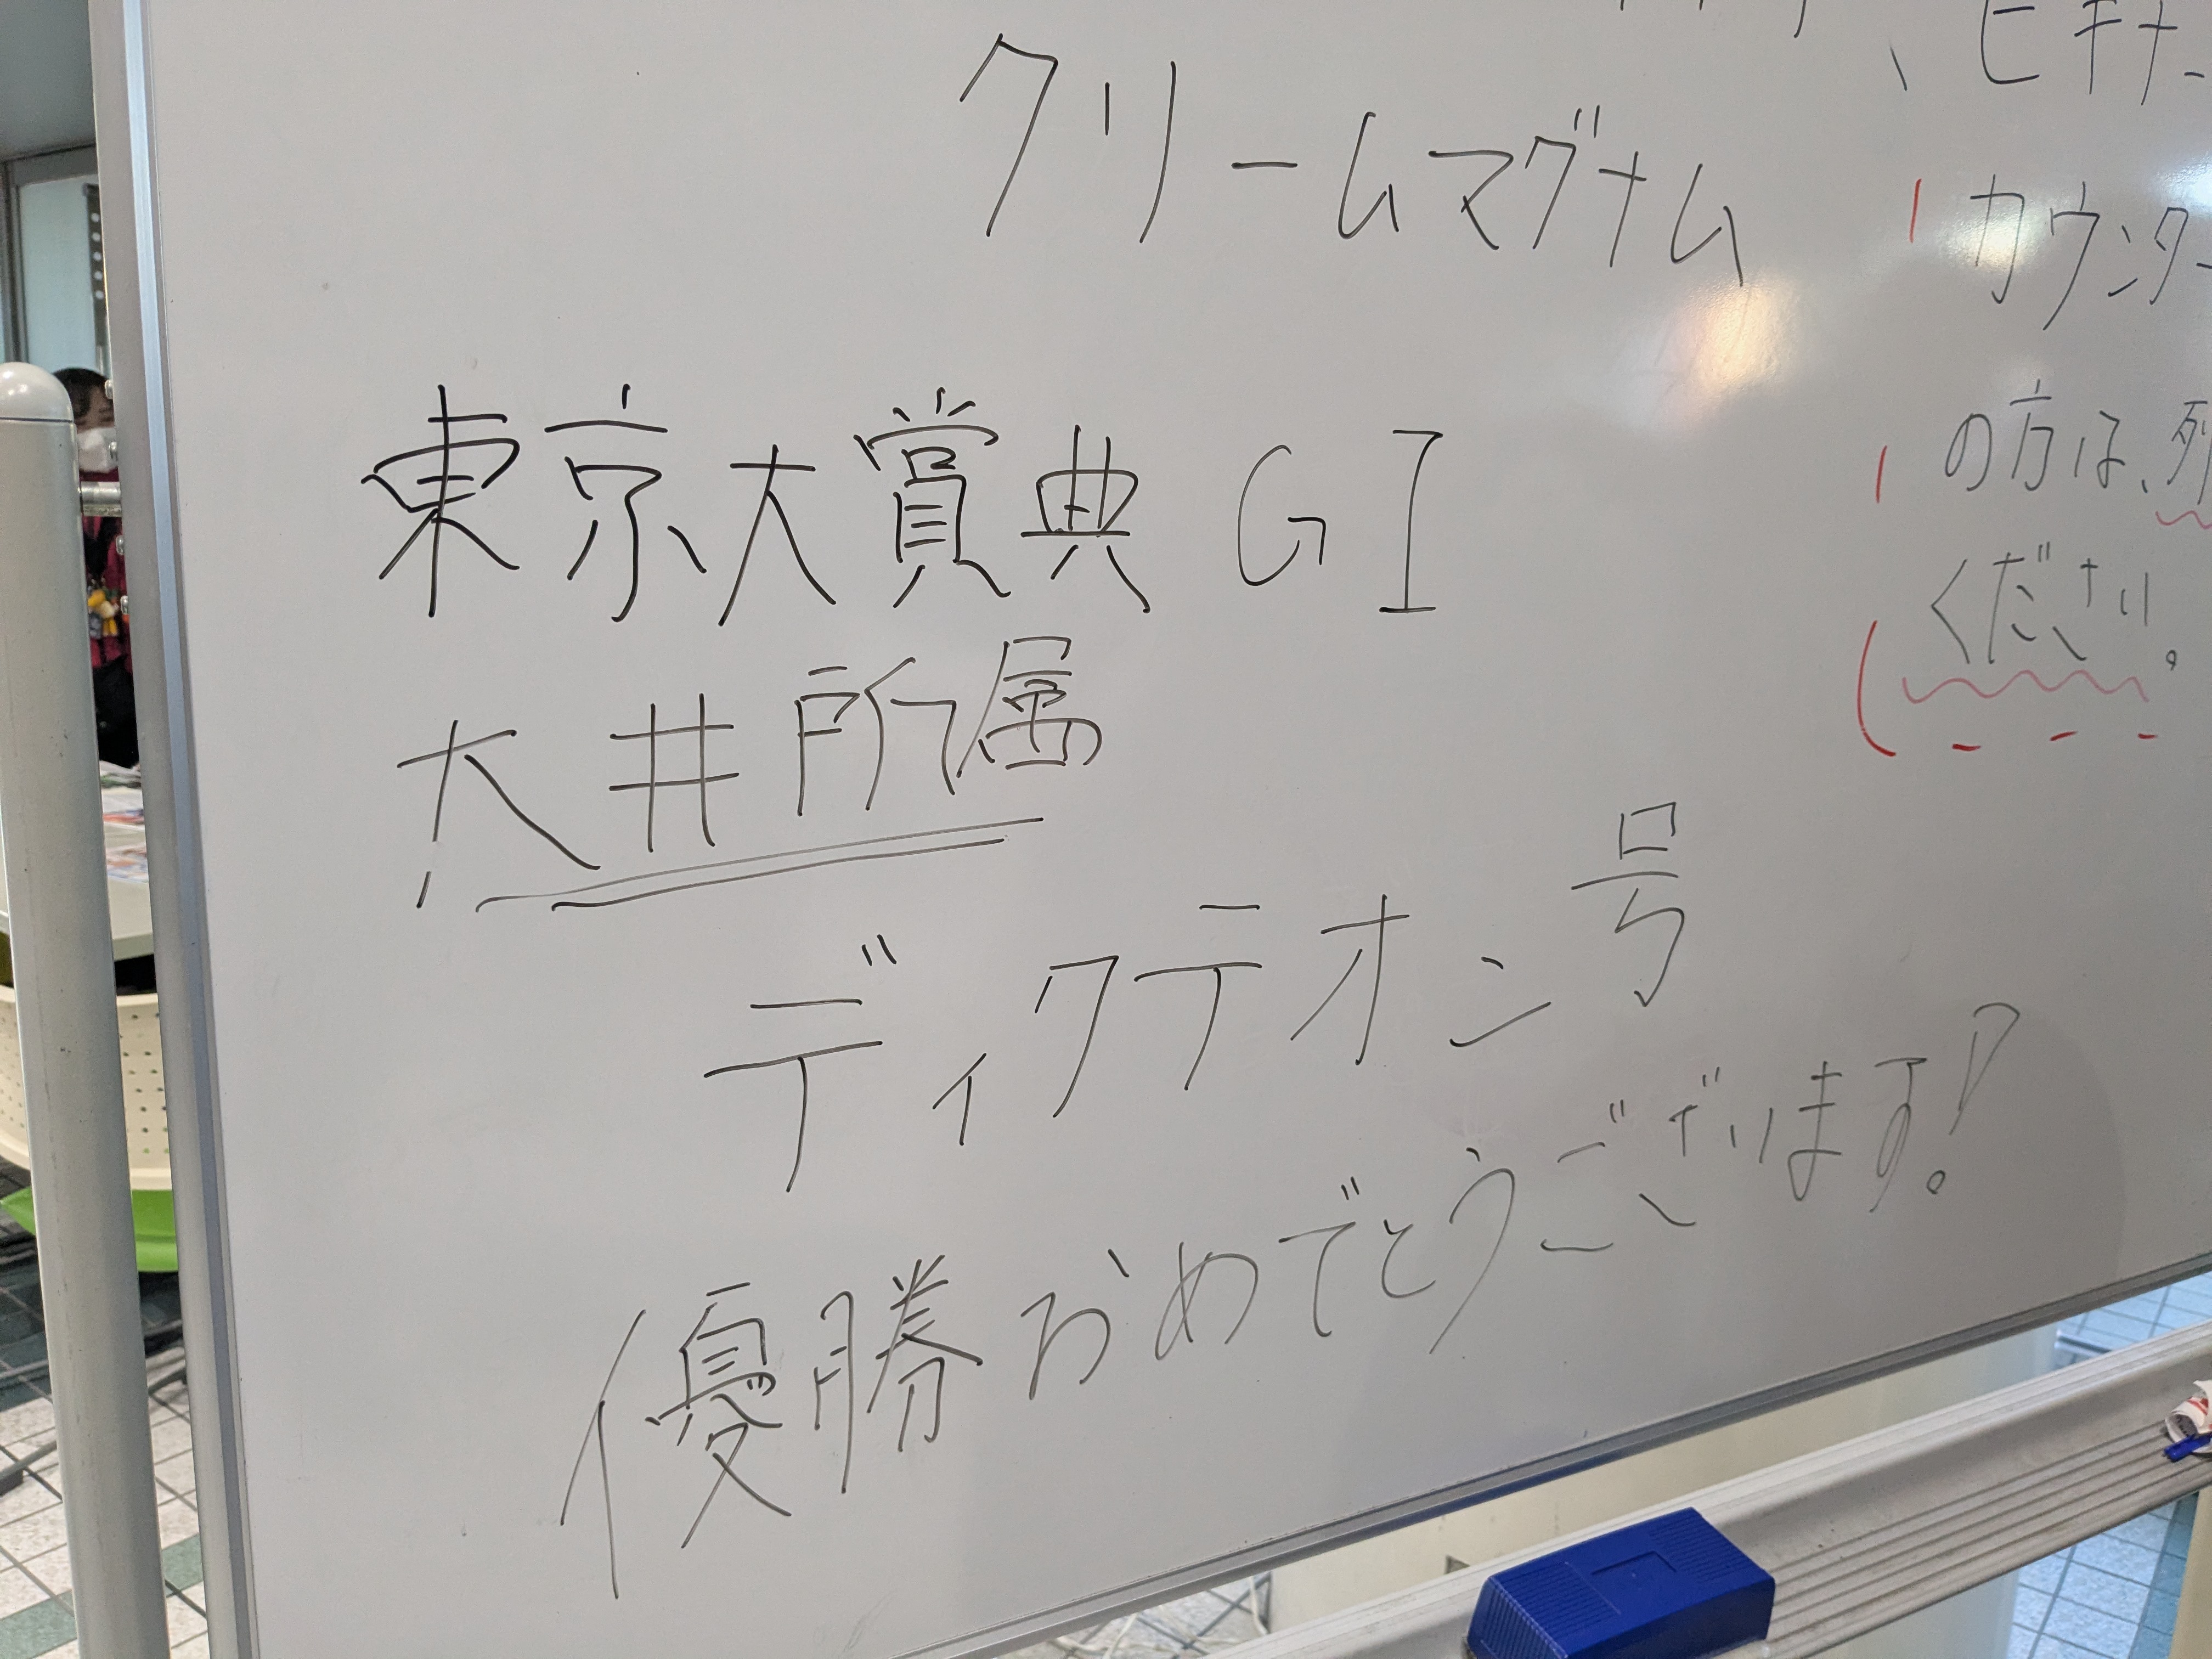 クリームマグナム
東京大賞典 GI
大井所属
ディクテオン号
優勝おめでとうございます!
、ビギナー
カウンター
の方は、
ください。